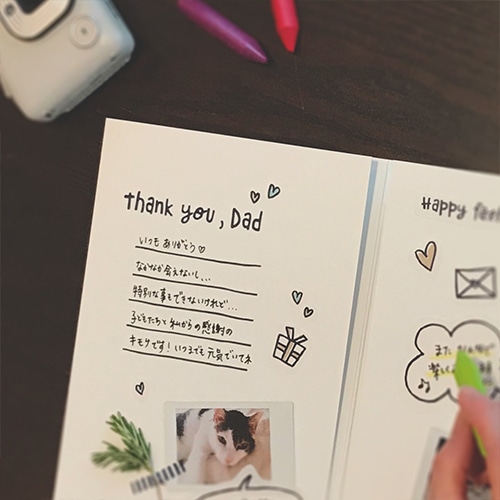 thank you, Dad
いつも ありがとう♡
なかなか会えないし...
特別な事もできないけれど...
子どもたちと私からの感謝の
キモチです！いつまでも元気でいてネ
Happy
また